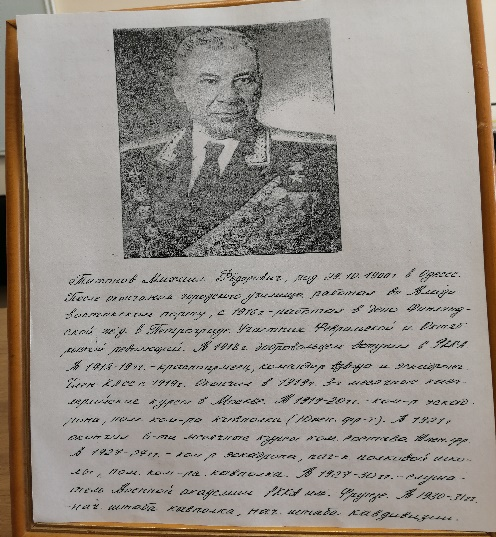 Титтов Михаил Фёдорович, род 29.10.1900 г в Одессе.
После окончания городского училища работал во Влади
востокском порту, с 1916г - работал в депо Финлянд-
ской ж/д. в Петрограде. Участник Февральской и Октяб
рьской революций. В 1918г. добровольцем вступил в РККА
В 1918-19гг. - красноармеец, командир взвода и эскадрона.
Член КПСС с 1919г. Окончил в 1919г. 3-х месячные кава-
лерийские курсы в Москве. В 1919-20гг. - ком-р эскад-
рона, пом. ком-ра кавполка (Южн. фр-т). В 1921г
окончил 6-ти месячные курсы ком. состава
В 1921-27гг. - ком-р эскадрона, нач-к полковой шко-
лы, пом. ком-ра кавполка. В 1927-30гг. - слуша-
тель Военной академии РККА им. Фрунзе. В 1930-31гг.
- нач. штаба кавполка, нач. штаба кавдивизии.